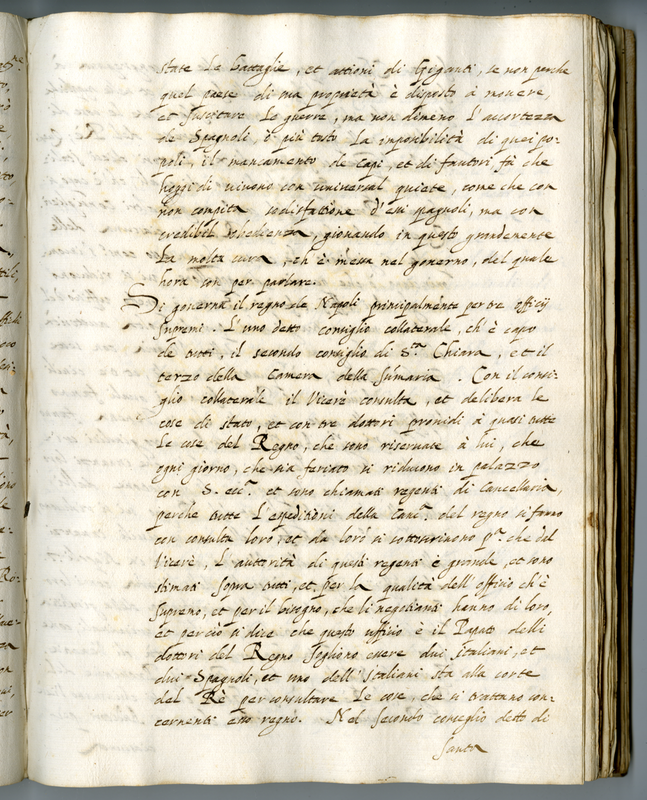 state le battaglie, et attioni di Giganti, se non perche
quel paese di sua proprietà è disposto à movere,
et suscitare le guerre, ma non dimeno l'accortezza
de Spagnoli, ò più tosto la imposibilità di quei po-
poli, il mancamento de capi, et di fautori fà che
hoggi di vivono con universal quiete, come che con
non compita sodisfattione d'essi spagnoli, ma con
credibil obedienza, giovando in questo grandemente
la molta cura, ch'è messa nel governo, del quale
hora son per parlare.
Si governa il regno de Napoli principalmente per tre officij
supremi. L'uno detto consiglio collaterale, ch'è capo
de tutti, il secondo consiglio di S.ta Chiara, et il
terzo della Camera della Summaria. Con il consi-
glio collaterale il Vicerè consulta, et delibera le
cose di stato, et con tre dottori providi à quasi tutte
le cose del Regno, che sono riservate à lui, che
ogni giorno, che sia feriato si riducono in palazzo
con S. ecc.a et sono chiamati regenti di Cancellaria,
perche tutte l'espeditioni della Canc.a del regno si fanno
con consulta loro, et da loro si sottoscrivono p.a che dal
Vicerè, l'autorità di questi regenti è grande, et sono
stimati sopra tutti, et per la qualità dell'offitio ch'è
supremo, et per il bisogno, che li negotianti hanno di loro,
et perciò si dice che questo uffitio è il Papato delli
dottori del Regno sogliono essere dui italiani, et
dui Spagnoli, et uno dell'italiani sta alla corte
del Rè per consultare le cose, che si trattano con-
cernenti esso regno. Nel secondo conseglio detto di
Santa